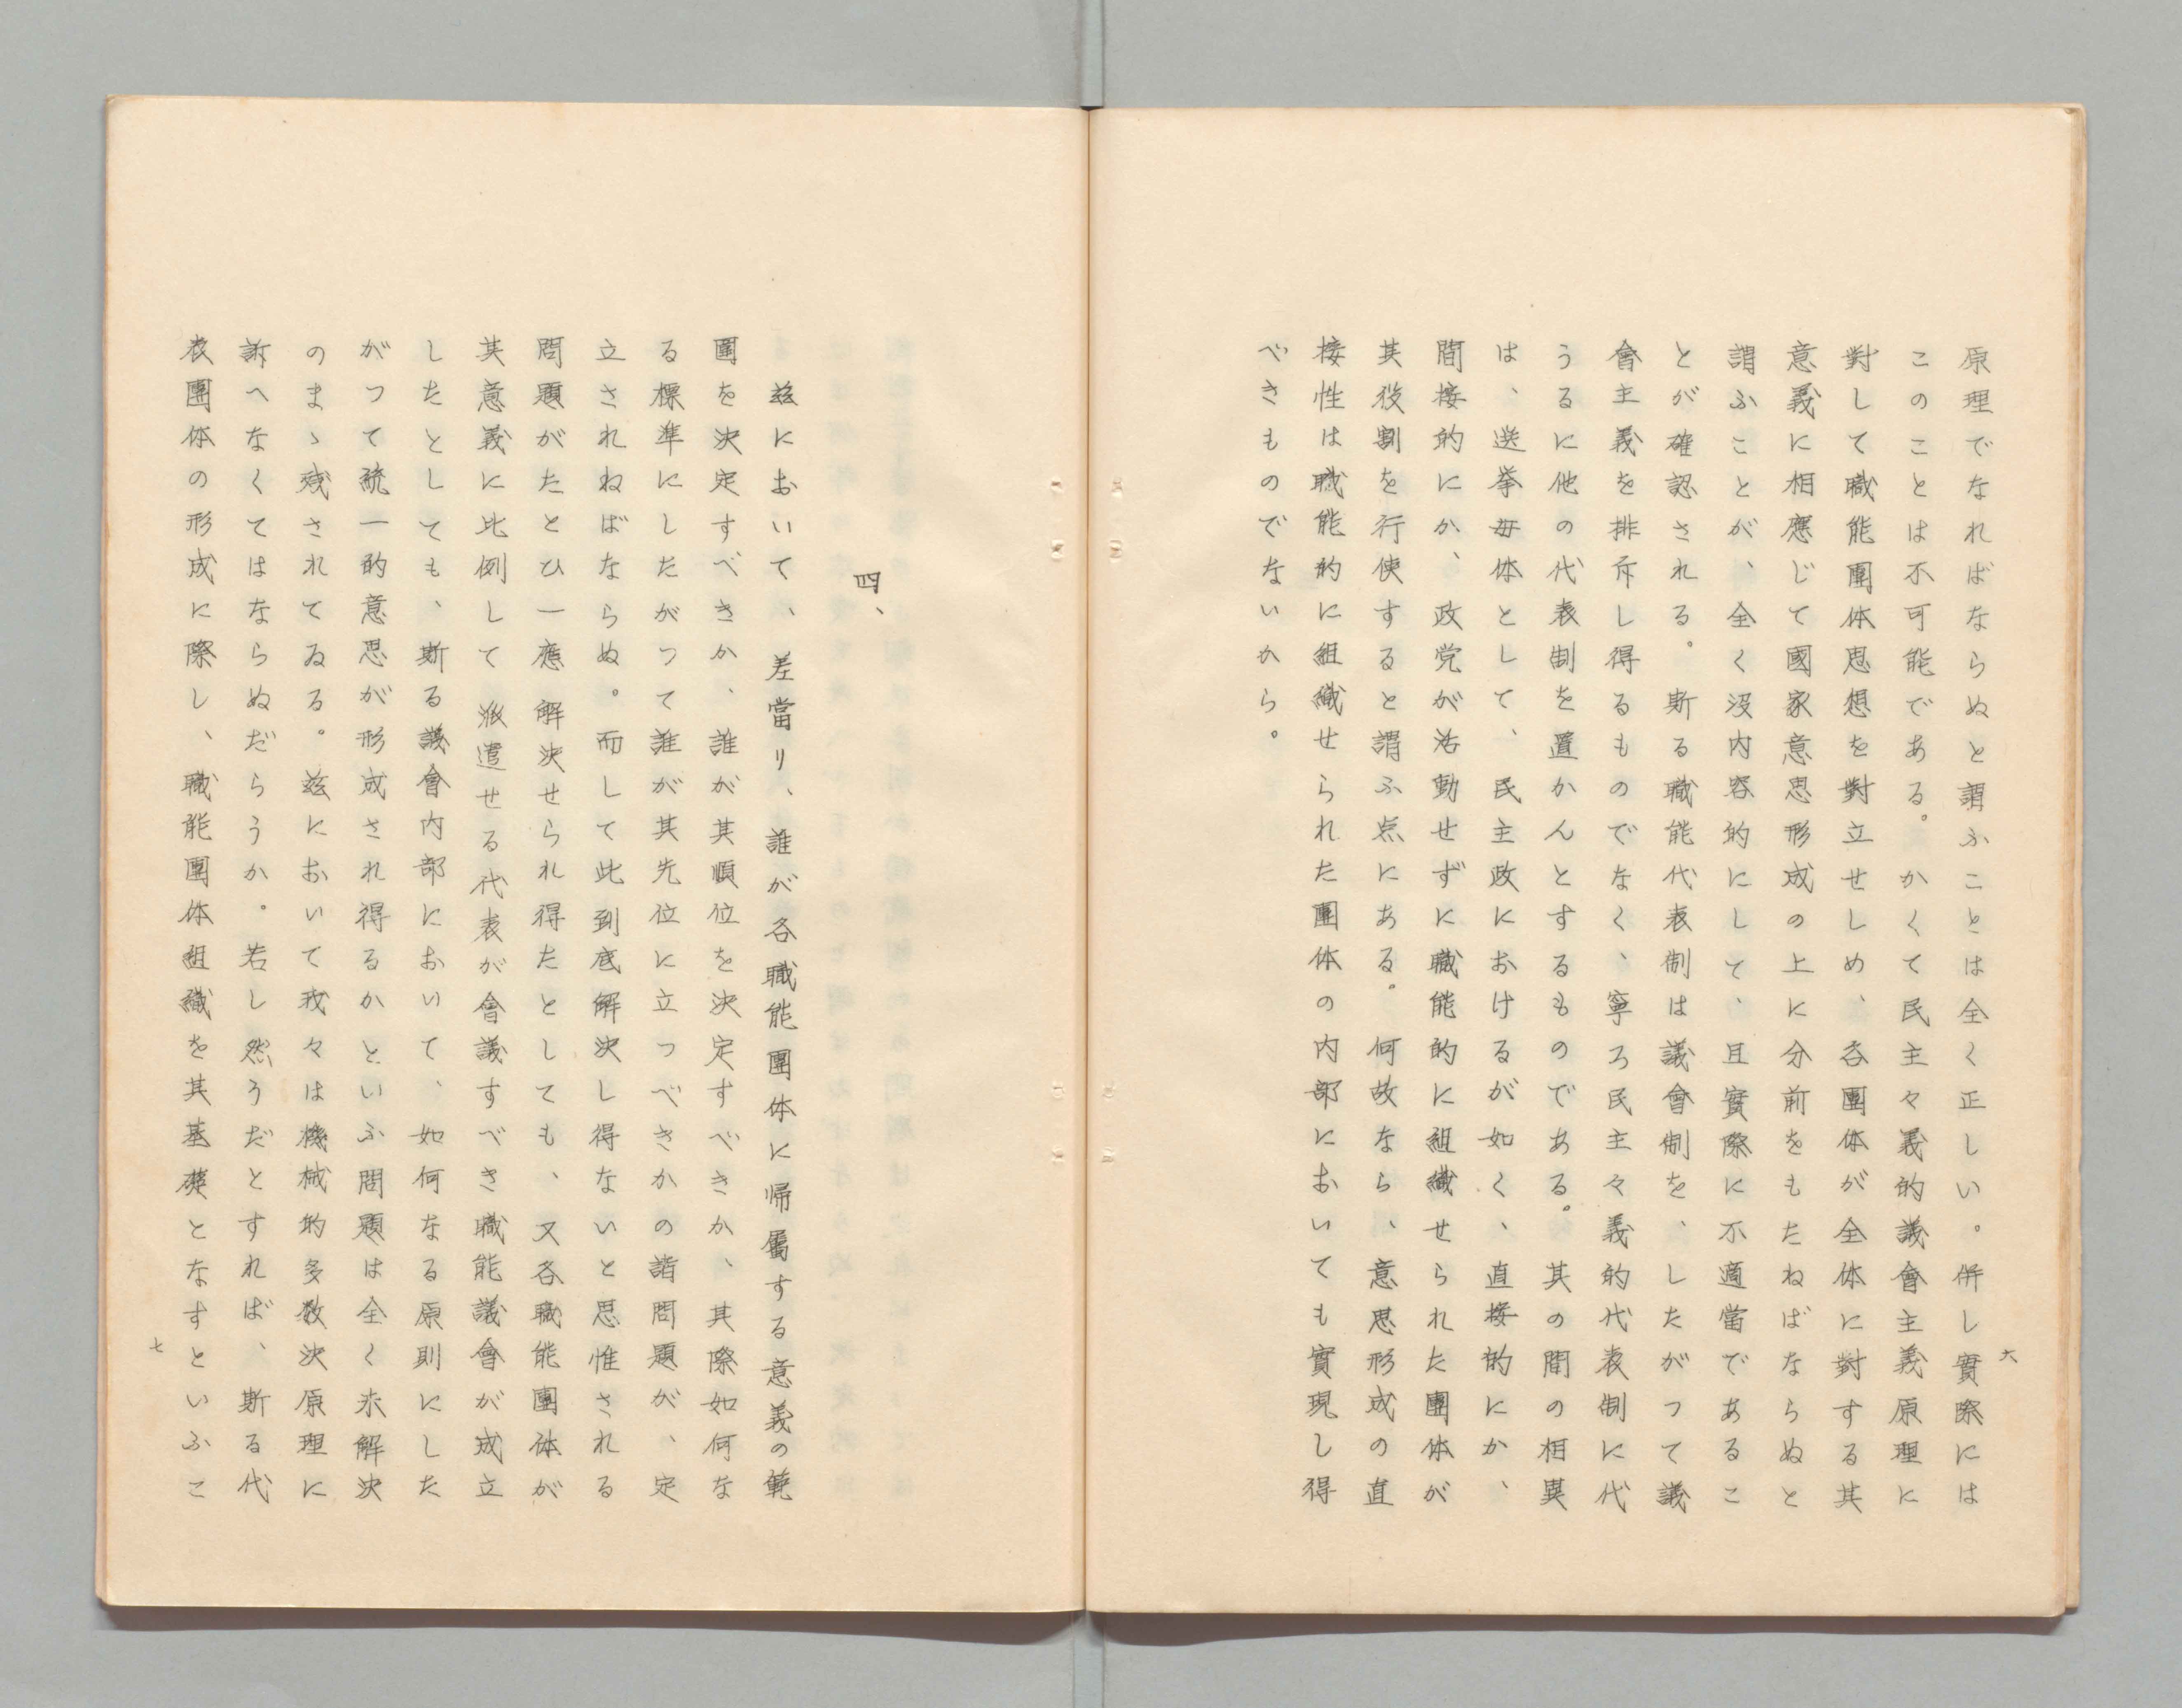 六
原理でなければならぬと謂ふことは全く正しい。併し實際には
このことは不可能である。かくて民主々義的議會主義原理に
對して職能團体思想を對立せしめ、各團体が全体に對する其
意義に相應じて國家意思形成の上に分前をもたねばならぬと
謂ふことが、全く没内容的にして、且實際に不適當であるこ
とが確認される。斯る職能代表制は議會制を、したがつて議
會主義を排斥し得るものでなく、寧ろ民主々義的代表制に代
うるに他の代表制を置かんとするものである。其の間の相異
は、選挙母体として、民主政におけるが如く、直接的にか、
間接的にか、政党が活動せずに職能的に組織せられた團体が
其役割を行使すると謂ふ点にある。何故なら、意思形成の直
接性は職能的に組織せられた團体の内部においても實現し得
べきものでないから。
四、
玆において、差當り、誰が各職能團体に帰屬する意義の範
圍を決定すべきか、誰が其順位を決定すべきか、其際如何な
る標準にしたがつて誰が其先位に立つべきかの諸問題が、定
立されねばならぬ。而して此到底解決し得ないと思惟される
問題がたとひ一應解決せられ得たとしても、又各職能團体が
其意義に比例して派遣せる代表が會議すべき職能議會が成立
したとしても、斯る議會内部において、如何なる原則にした
がつて統一的意思が形成され得るかといふ問題は全く未解決
のまゝ残されてゐる。玆において我々は機械的多数決原理に
訴へなくてはならぬだらうか。若し然うだとすれば、斯る代
表團体の形成に際し、職能團体組織を其基礎となすといふこ
七